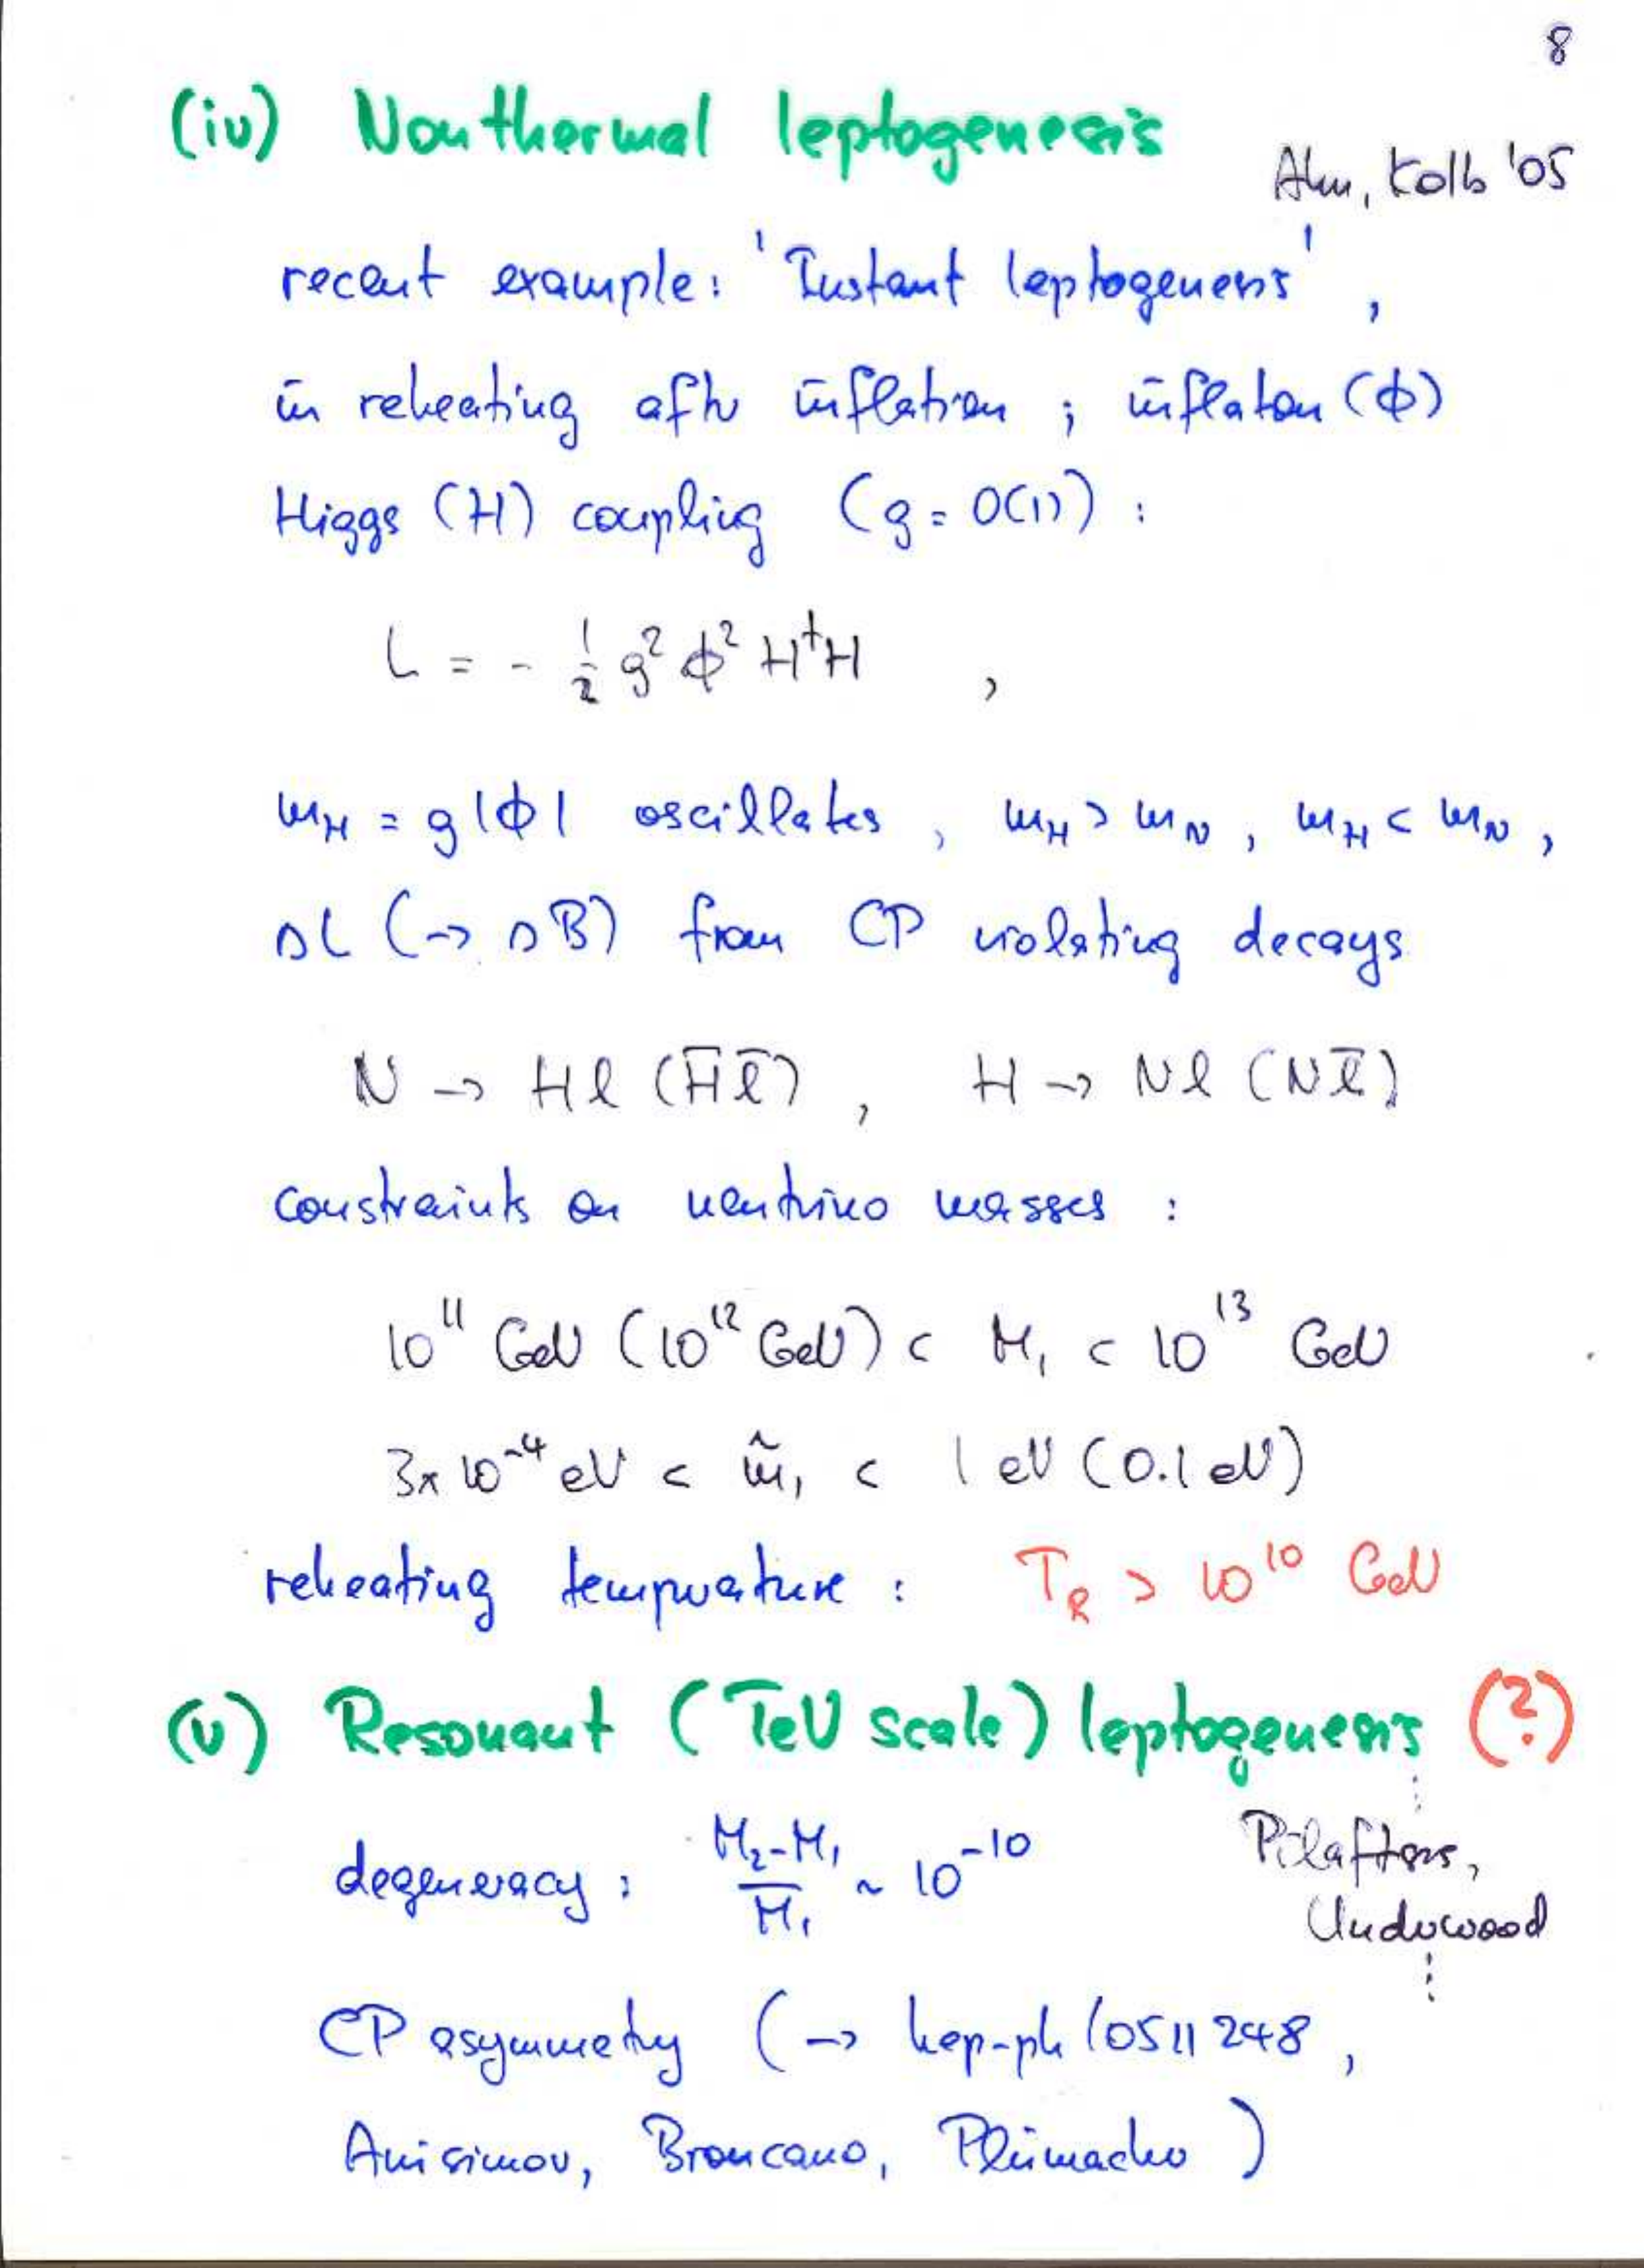 8
(iv) Nonthermal leptogenesis
Ahn, Kolb '05
recent example: 'Instant leptogenesis',
in reheating after inflation ; inflaton (ϕ)
Higgs (H) coupling (g = O(1)) :
L = - 1/2 g² ϕ² H†H ,
m_H = g|ϕ| oscillates , m_H > m_N , m_H < m_N ,
ΔL (→ ΔB) from CP violating decays
N → Hl (H̄l̄) , H → Nl (Nl̄)
constraints on neutrino masses :
10¹¹ GeV (10¹² GeV) < M₁ < 10¹³ GeV
3x10⁻⁴ eV < m̃₁ < 1 eV (0.1 eV)
reheating temperature : T_R > 10¹⁰ GeV
(v) Resonant (TeV scale) leptogenesis (?)
degeneracy : (M₂-M₁)/M₁ ~ 10⁻¹⁰
Pilaftsis,
Underwood
CP asymmetry (→ hep-ph/0511248,
Anisimov, Broncano, Plümacher)